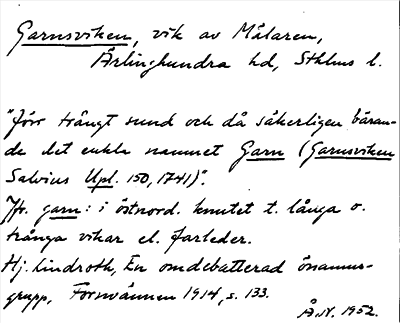 Garnsviken, vik av Mälaren,
Ärlinghundra hd, Sthlms l.
"Förr trångt sund och då säkerligen bäran-
de det enkla namnet Garn (Garnsviken
Salvius Upl. 150, 1741)".
Jfr. garn: i östnord. knutet t. långa o.
trånga vikar el. farleder.
Hj. Lindroth, En omdebatterad önamns-
grupp, Fornvännen 1914, s. 133.
Å.N. 1952.